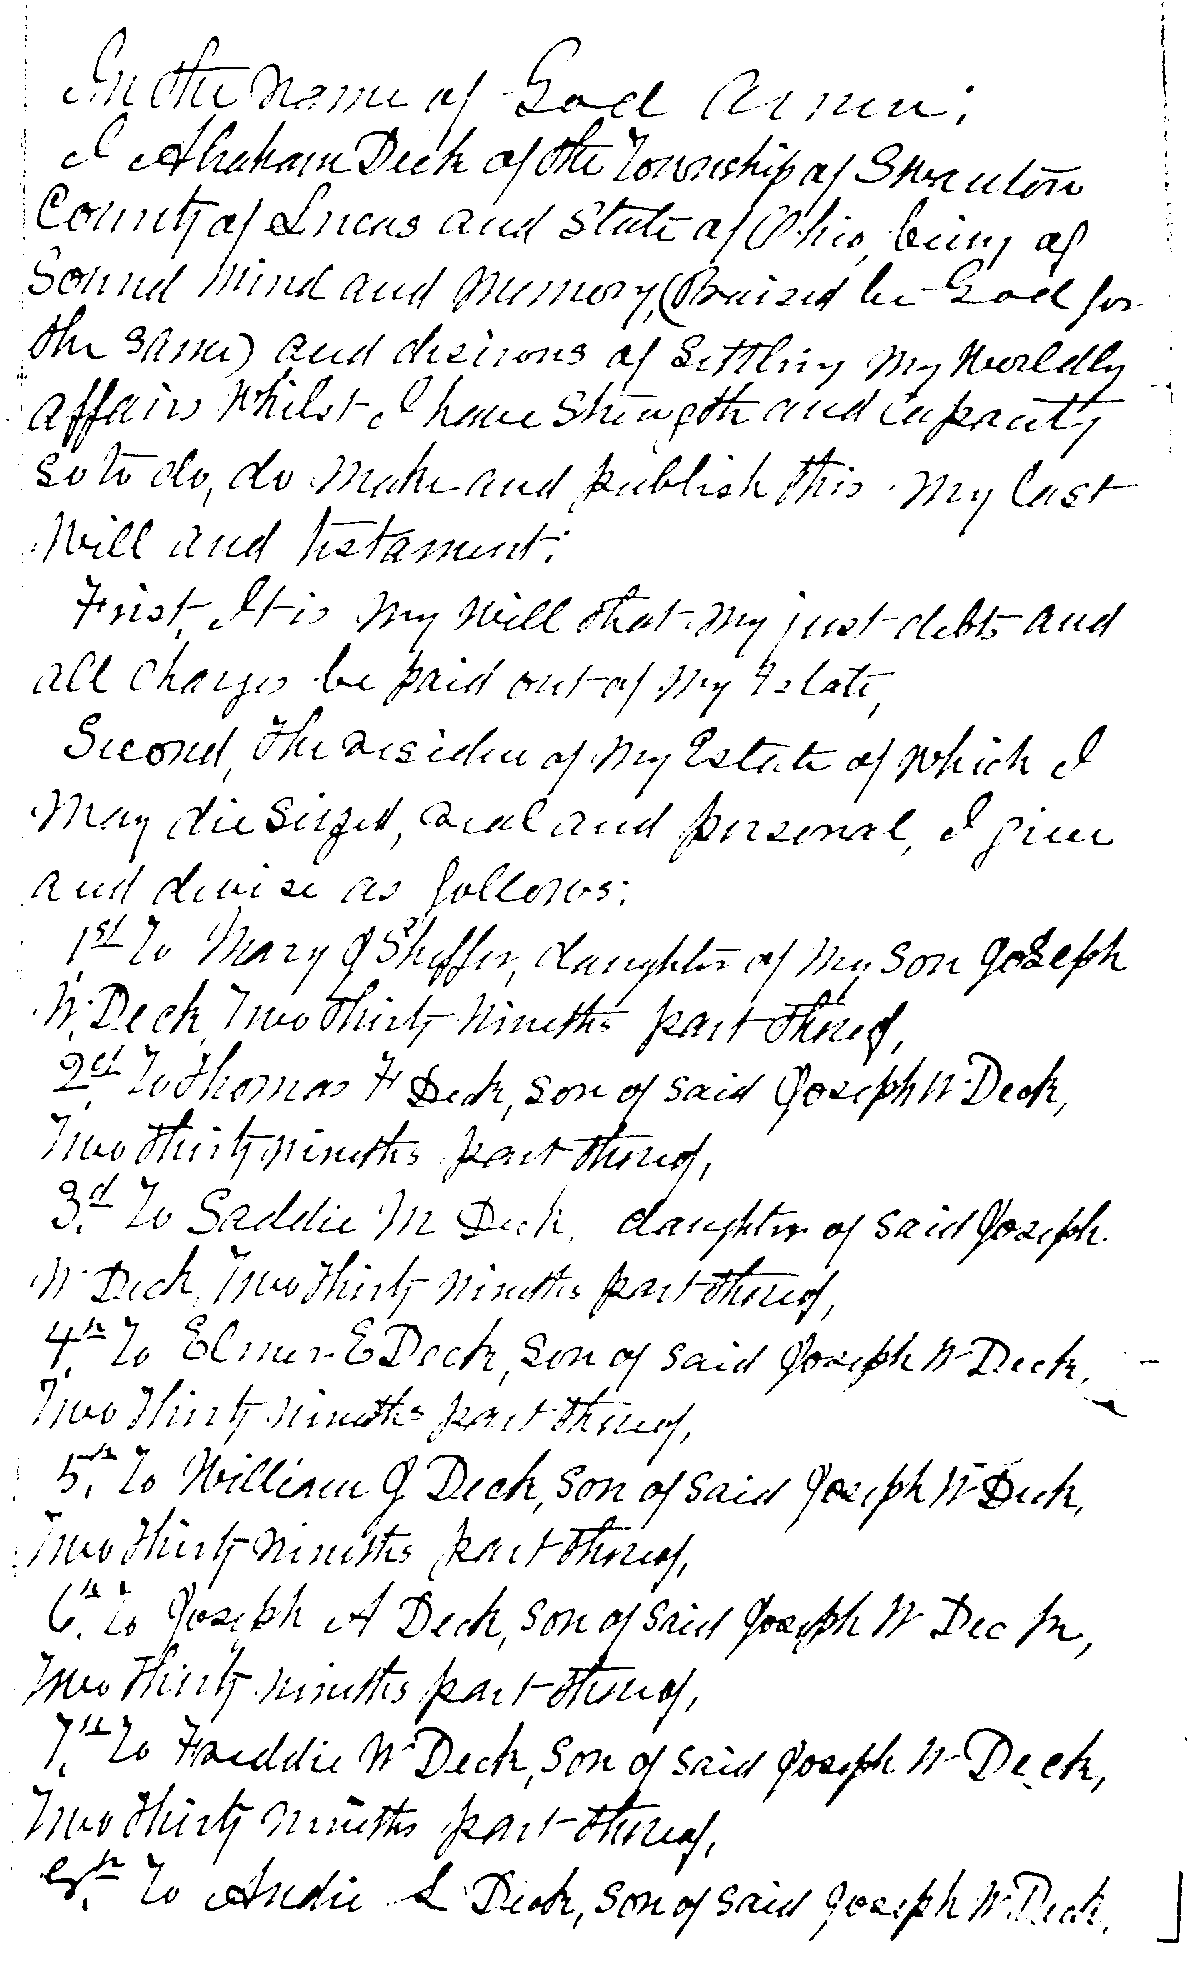 In the Name of God Amen;
I Abraham Deck of the Township of Swanton
County of Lucas and State of Ohio, being of
Sound Mind and Memory, (Praised be God for
the same) and desirous of settling My Worldly
affairs Whilst I have Strength and capacity
so to do, do Make and publish this My last
Will and testament:
First, It is My Will that My just debts and
all charges be paid out of My Estate,
Second, the residue of My Estate of Which I
May die siezed, real and personal, I give
and devise as follows:
1st To Mary J Sheffer, daughter of My son Joseph
W. Deck, Two thirty nineths part thereof,
2d To Thomas F Deck, son of said Joseph W. Deck,
Two thirty nineths part thereof,
3d. To Saddie M Deck, daughter of said Joseph
W Deck, Two thirty nineths part thereof,
4th To Elmer E Deck, son of said Joseph W Deck,
Two thirty nineths part thereof,
5th. To William J Deck, son of said Joseph W Deck,
Two thirty nineths part thereof,
6th. To Joseph A Deck, son of said Joseph W Deck,
Two thirty nineths part thereof,
7th. To Freddie W Deck, son of said Joseph W Deck,
Two thirty nineths part thereof,
8th. To Andie L Deck, son of said Joseph W. Deck,